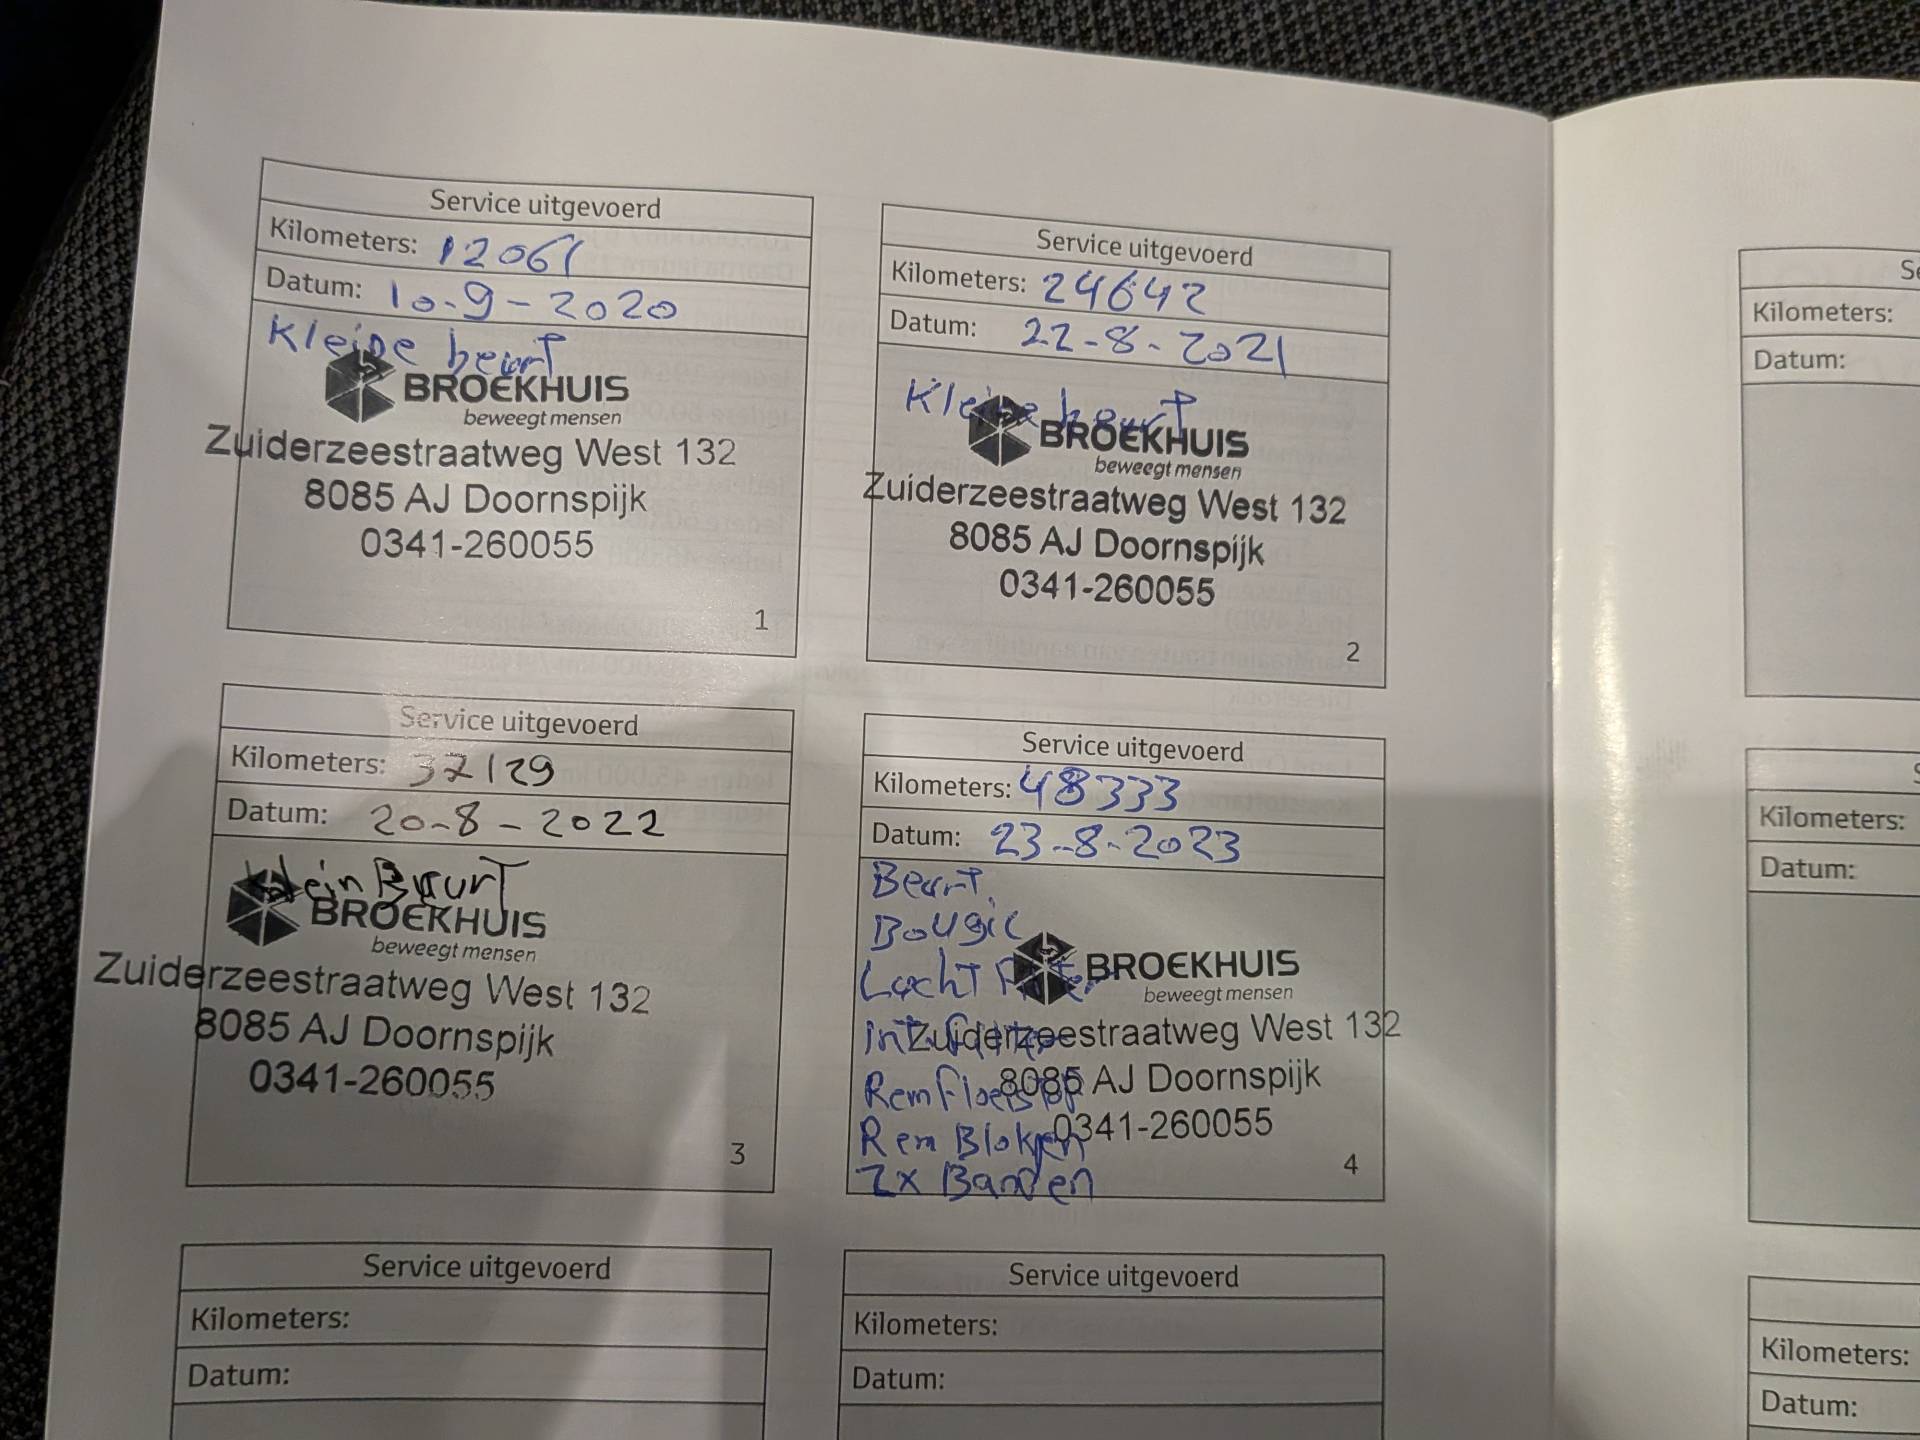 Service uitgevoerd
Kilometers: 12061
Datum: 10-9-2020
Kleine beurt
BROEKHUIS
beweegt mensen
Zuiderzeestraatweg West 132
8085 AJ Doornspijk
0341-260055
1
Service uitgevoerd
Kilometers: 24642
Datum: 22-8-2021
Kleine beurt
BROEKHUIS
beweegt mensen
Zuiderzeestraatweg West 132
8085 AJ Doornspijk
0341-260055
2
Service uitgevoerd
Kilometers: 37129
Datum: 20-8-2022
Klein Beurt
BROEKHUIS
beweegt mensen
Zuiderzeestraatweg West 132
8085 AJ Doornspijk
0341-260055
3
Service uitgevoerd
Kilometers: 48333
Datum: 23-8-2023
Beurt
Bougie
Lucht Filter
Int. filter
Remfloeistof
Rem Blokken
2x Banden
BROEKHUIS
beweegt mensen
Zuiderzeestraatweg West 132
8085 AJ Doornspijk
0341-260055
4
Service uitgevoerd
Kilometers:
Datum:
Service uitgevoerd
Kilometers:
Datum:
Kilometers:
Datum:
Kilometers:
Datum:
Kilometers:
Datum: